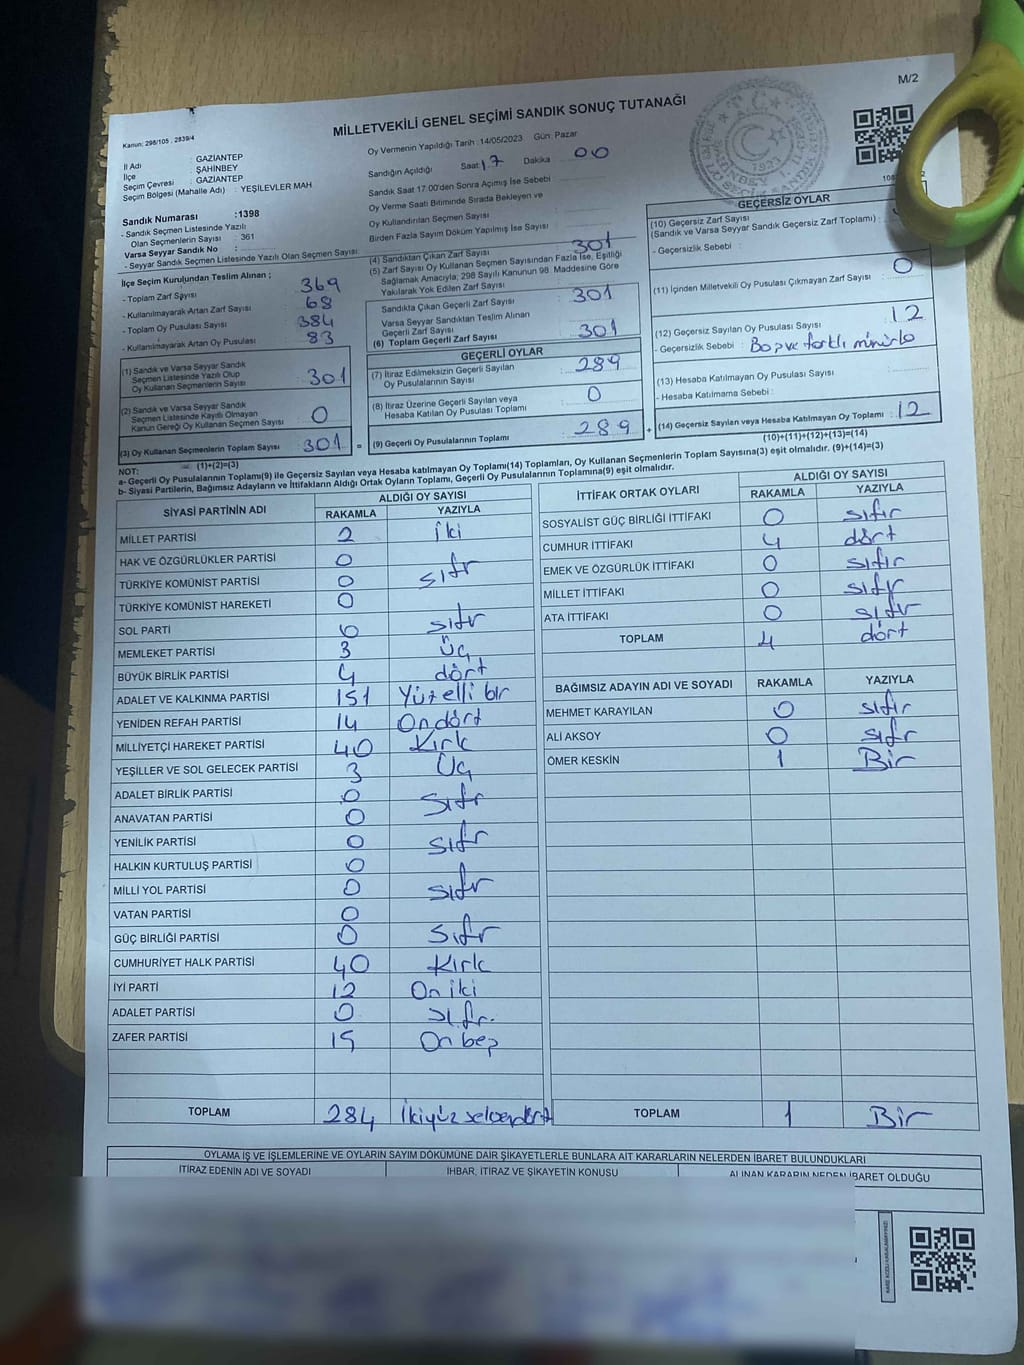 M/2
MİLLETVEKİLİ GENEL SEÇİMİ SANDIK SONUÇ TUTANAĞI
Kanun: 298/105 . 2839/4
İl Adı : GAZİANTEP
İlçe : ŞAHİNBEY
Seçim Çevresi : GAZİANTEP
Seçim Bölgesi (Mahalle Adı) : YEŞİLEVLER MAH
Sandık Numarası :1398
- Sandık Seçmen Listesinde Yazılı
Olan Seçmenlerin Sayısı : 361
Varsa Seyyar Sandık No :
- Seyyar Sandık Seçmen Listesinde Yazılı Olan Seçmen Sayısı:
Oy Vermenin Yapıldığı Tarih :14/05/2023 Gün: Pazar
Sandığın Açıldığı Saat 17 Dakika 00
Sandık Saat 17.00'den Sonra Açılmış İse Sebebi :
Oy Verme Saati Bitiminde Sırada Bekleyen ve
Oy Kullandırılan Seçmen Sayısı :
Birden Fazla Sayım Döküm Yapılmış İse Sayısı :
İlçe Seçim Kurulundan Teslim Alınan ;
- Toplam Zarf Sayısı : 369
- Kullanılmayarak Artan Zarf Sayısı : 68
- Toplam Oy Pusulası Sayısı : 384
- Kullanılmayarak Artan Oy Pusulası : 83
(1) Sandık ve Varsa Seyyar Sandık
Seçmen Listesinde Yazılı Olup
Oy Kullanan Seçmenlerin Sayısı : 301
(2) Sandık ve Varsa Seyyar Sandık
Seçmen Listesinde Kayıtlı Olmayan
Kanun Gereği Oy Kullanan Seçmen Sayısı : 0
(3) Oy Kullanan Seçmenlerin Toplam Sayısı : 301
(1)+(2)=(3)
(4) Sandıktan Çıkan Zarf Sayısı : 301
(5) Zarf Sayısı Oy Kullanan Seçmen Sayısından Fazla İse, Eşitliği
Sağlamak Amacıyla; 298 Sayılı Kanunun 98. Maddesine Göre
Yakılarak Yok Edilen Zarf Sayısı :
Sandıkta Çıkan Geçerli Zarf Sayısı : 301
Varsa Seyyar Sandıktan Teslim Alınan
Geçerli Zarf Sayısı :
(6) Toplam Geçerli Zarf Sayısı : 301
GEÇERLİ OYLAR
(7) İtiraz Edilmeksizin Geçerli Sayılan
Oy Pusulalarının Sayısı : 289
(8) İtiraz Üzerine Geçerli Sayılan veya
Hesaba Katılan Oy Pusulası Toplamı : 0
(9) Geçerli Oy Pusulalarının Toplamı : 289
GEÇERSİZ OYLAR
(10) Geçersiz Zarf Sayısı
(Sandık ve Varsa Seyyar Sandık Geçersiz Zarf Toplamı) :
- Geçersizlik Sebebi :
(11) İçinden Milletvekili Oy Pusulası Çıkmayan Zarf Sayısı : 0
(12) Geçersiz Sayılan Oy Pusulası Sayısı : 12
- Geçersizlik Sebebi : Boş ve farklı mühürlü
(13) Hesaba Katılmayan Oy Pusulası Sayısı :
- Hesaba Katılmama Sebebi :
(14) Geçersiz Sayılan veya Hesaba Katılmayan Oy Toplamı : 12
(10)+(11)+(12)+(13)=(14)
NOT:
a- Geçerli Oy Pusulalarının Toplamı(9) ile Geçersiz Sayılan veya Hesaba katılmayan Oy Toplamı(14) Toplamları, Oy Kullanan Seçmenlerin Toplam Sayısına(3) eşit olmalıdır. (9)+(14)=(3)
b- Siyasi Partilerin, Bağımsız Adayların ve İttifakların Aldığı Ortak Oyların Toplamı, Geçerli Oy Pusulalarının Toplamına(9) eşit olmalıdır.
SİYASİ PARTİNİN ADI ALDIĞI OY SAYISI
RAKAMLA YAZIYLA
MİLLET PARTİSİ 2 iki
HAK VE ÖZGÜRLÜKLER PARTİSİ 0
TÜRKİYE KOMÜNİST PARTİSİ 0 sıfır
TÜRKİYE KOMÜNİST HAREKETİ 0
SOL PARTİ 0 sıfır
MEMLEKET PARTİSİ 3 Üç
BÜYÜK BİRLİK PARTİSİ 4 dört
ADALET VE KALKINMA PARTİSİ 151 Yüzelli bir
YENİDEN REFAH PARTİSİ 14 Ondört
MİLLİYETÇİ HAREKET PARTİSİ 40 Kırk
YEŞİLLER VE SOL GELECEK PARTİSİ 3 Üç
ADALET BİRLİK PARTİSİ 0 sıfır
ANAVATAN PARTİSİ 0
YENİLİK PARTİSİ 0 sıfır
HALKIN KURTULUŞ PARTİSİ 0
MİLLİ YOL PARTİSİ 0 sıfır
VATAN PARTİSİ 0
GÜÇ BİRLİĞİ PARTİSİ 0 sıfır
CUMHURİYET HALK PARTİSİ 40 Kırk
İYİ PARTİ 12 On iki
ADALET PARTİSİ 0 sıfır.
ZAFER PARTİSİ 15 On beş
TOPLAM 284 İkiyüz seksendört
İTTİFAK ORTAK OYLARI ALDIĞI OY SAYISI
RAKAMLA YAZIYLA
SOSYALİST GÜÇ BİRLİĞİ İTTİFAKI 0 sıfır
CUMHUR İTTİFAKI 4 dört
EMEK VE ÖZGÜRLÜK İTTİFAKI 0 sıfır
MİLLET İTTİFAKI 0 sıfır
ATA İTTİFAKI 0 sıfır
TOPLAM 4 dört
BAĞIMSIZ ADAYIN ADI VE SOYADI RAKAMLA YAZIYLA
MEHMET KARAYILAN 0 sıfır
ALİ AKSOY 0 sıfır
ÖMER KESKİN 1 Bir
TOPLAM 1 Bir
OYLAMA İŞ VE İŞLEMLERİNE VE OYLARIN SAYIM DÖKÜMÜNE DAİR ŞİKAYETLERLE BUNLARA AİT KARARLARIN NELERDEN İBARET BULUNDUKLARI
İTİRAZ EDENİN ADI VE SOYADI İHBAR, İTİRAZ VE ŞİKAYETİN KONUSU ALINAN KARARIN NEDEN İBARET OLDUĞU